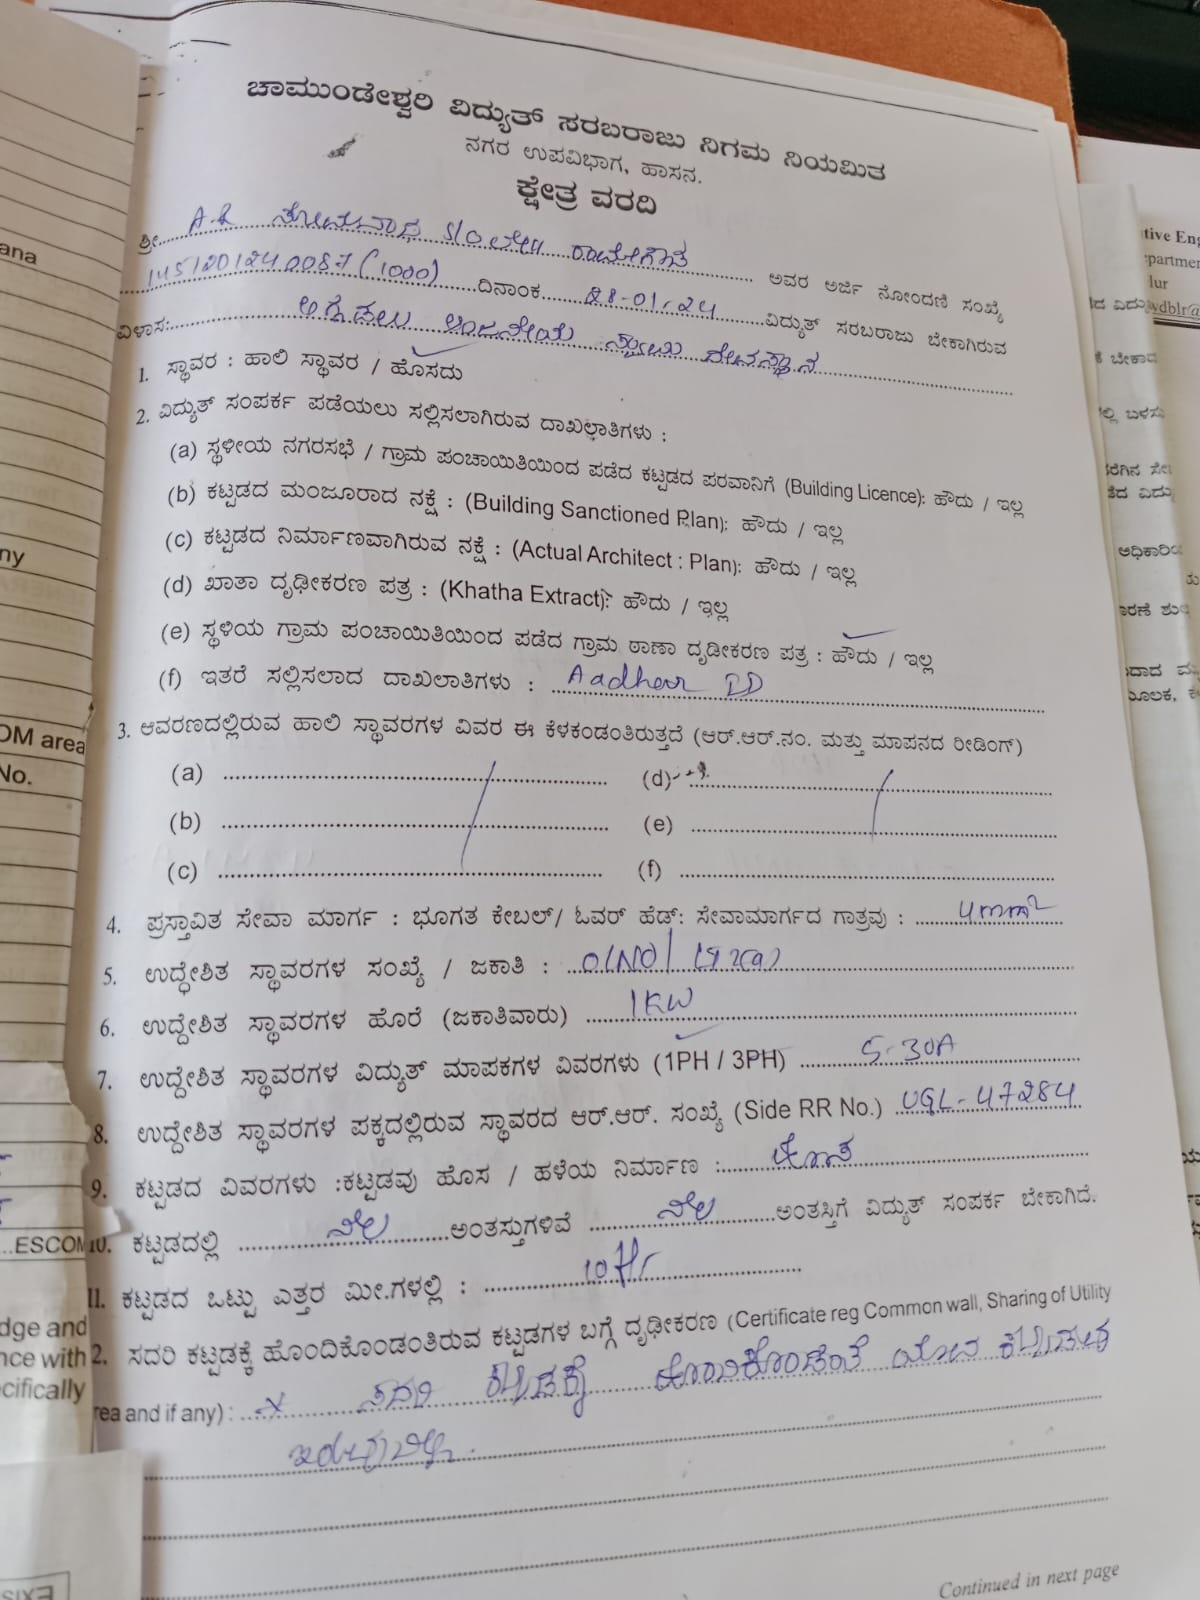 ಚಾಮುಂಡೇಶ್ವರಿ ವಿದ್ಯುತ್ ಸರಬರಾಜು ನಿಗಮ ನಿಯಮಿತ
ನಗರ ಉಪವಿಭಾಗ, ಹಾಸನ.
ಕ್ಷೇತ್ರ ವರದಿ
ಶ್ರೀ A.R ಸೋಮನಾಥ S/O ರಾಮೇಗೌಡ ಅವರ ಅರ್ಜಿ ನೋಂದಣಿ ಸಂಖ್ಯೆ
145120124.0087 (1000) ದಿನಾಂಕ 28-01-24 ವಿದ್ಯುತ್ ಸರಬರಾಜು ಬೇಕಾಗಿರುವ
ವಿಳಾಸ: ಆಂಜನೇಯ ಸ್ವಾಮಿ ದೇವಸ್ಥಾನ
1. ಸ್ಥಾವರ : ಹಾಲಿ ಸ್ಥಾವರ / ಹೊಸದು
2. ವಿದ್ಯುತ್ ಸಂಪರ್ಕ ಪಡೆಯಲು ಸಲ್ಲಿಸಲಾಗಿರುವ ದಾಖಲಾತಿಗಳು :
(a) ಸ್ಥಳೀಯ ನಗರಸಭೆ / ಗ್ರಾಮ ಪಂಚಾಯಿತಿಯಿಂದ ಪಡೆದ ಕಟ್ಟಡದ ಪರವಾನಿಗೆ (Building Licence): ಹೌದು / ಇಲ್ಲ
(b) ಕಟ್ಟಡದ ಮಂಜೂರಾದ ನಕ್ಷೆ : (Building Sanctioned Plan): ಹೌದು / ಇಲ್ಲ
(c) ಕಟ್ಟಡದ ನಿರ್ಮಾಣವಾಗಿರುವ ನಕ್ಷೆ : (Actual Architect : Plan): ಹೌದು / ಇಲ್ಲ
(d) ಖಾತಾ ದೃಢೀಕರಣ ಪತ್ರ : (Khatha Extract): ಹೌದು / ಇಲ್ಲ
(e) ಸ್ಥಳಿಯ ಗ್ರಾಮ ಪಂಚಾಯಿತಿಯಿಂದ ಪಡೆದ ಗ್ರಾಮ ಠಾಣಾ ದೃಢೀಕರಣ ಪತ್ರ : ಹೌದು / ಇಲ್ಲ
(f) ಇತರೆ ಸಲ್ಲಿಸಲಾದ ದಾಖಲಾತಿಗಳು : Aadhear ID
3. ಆವರಣದಲ್ಲಿರುವ ಹಾಲಿ ಸ್ಥಾವರಗಳ ವಿವರ ಈ ಕೆಳಕಂಡಂತಿರುತ್ತದೆ (ಆರ್.ಆರ್.ನಂ. ಮತ್ತು ಮಾಪನದ ರೀಡಿಂಗ್)
(a) (d)
(b) (e)
(c) (f)
4. ಪ್ರಸ್ತಾವಿತ ಸೇವಾ ಮಾರ್ಗ : ಭೂಗತ ಕೇಬಲ್/ ಓವರ್ ಹೆಡ್: ಸೇವಾಮಾರ್ಗದ ಗಾತ್ರವು : 4mm²
5. ಉದ್ಧೇಶಿತ ಸ್ಥಾವರಗಳ ಸಂಖ್ಯೆ / ಜಕಾತಿ :
6. ಉದ್ದೇಶಿತ ಸ್ಥಾವರಗಳ ಹೊರೆ (ಜಕಾತಿವಾರು) 1KW
7. ಉದ್ದೇಶಿತ ಸ್ಥಾವರಗಳ ವಿದ್ಯುತ್ ಮಾಪಕಗಳ ವಿವರಗಳು (1PH / 3PH) 5-30A
8. ಉದ್ದೇಶಿತ ಸ್ಥಾವರಗಳ ಪಕ್ಕದಲ್ಲಿರುವ ಸ್ಥಾವರದ ಆರ್.ಆರ್. ಸಂಖ್ಯೆ (Side RR No.) UGL-47284
9. ಕಟ್ಟಡದ ವಿವರಗಳು :ಕಟ್ಟಡವು ಹೊಸ / ಹಳೆಯ ನಿರ್ಮಾಣ : ಹೊಸ
10. ಕಟ್ಟಡದಲ್ಲಿ ನೆಲ ಅಂತಸ್ತುಗಳಿವೆ ನೆಲ ಅಂತಸ್ತಿಗೆ ವಿದ್ಯುತ್ ಸಂಪರ್ಕ ಬೇಕಾಗಿದೆ.
11. ಕಟ್ಟಡದ ಒಟ್ಟು ಎತ್ತರ ಮೀ.ಗಳಲ್ಲಿ : 10
2. ಸದರಿ ಕಟ್ಟಡಕ್ಕೆ ಹೊಂದಿಕೊಂಡಂತಿರುವ ಕಟ್ಟಡಗಳ ಬಗ್ಗೆ ದೃಢೀಕರಣ (Certificate reg Common wall, Sharing of Utility
rea and if any) : ಸದರಿ ಕಟ್ಟಡಕ್ಕೆ ಹೊಂದಿಕೊಂಡಂತೆ ಯಾವ ಕಟ್ಟಡವೂ
ಇರುವುದಿಲ್ಲ.
Continued in next page
ana
ny
OM area
No.
ESCOM
dge and
nce with
cifically
EXIS
tive Eng
partmen
lur
wdblr@